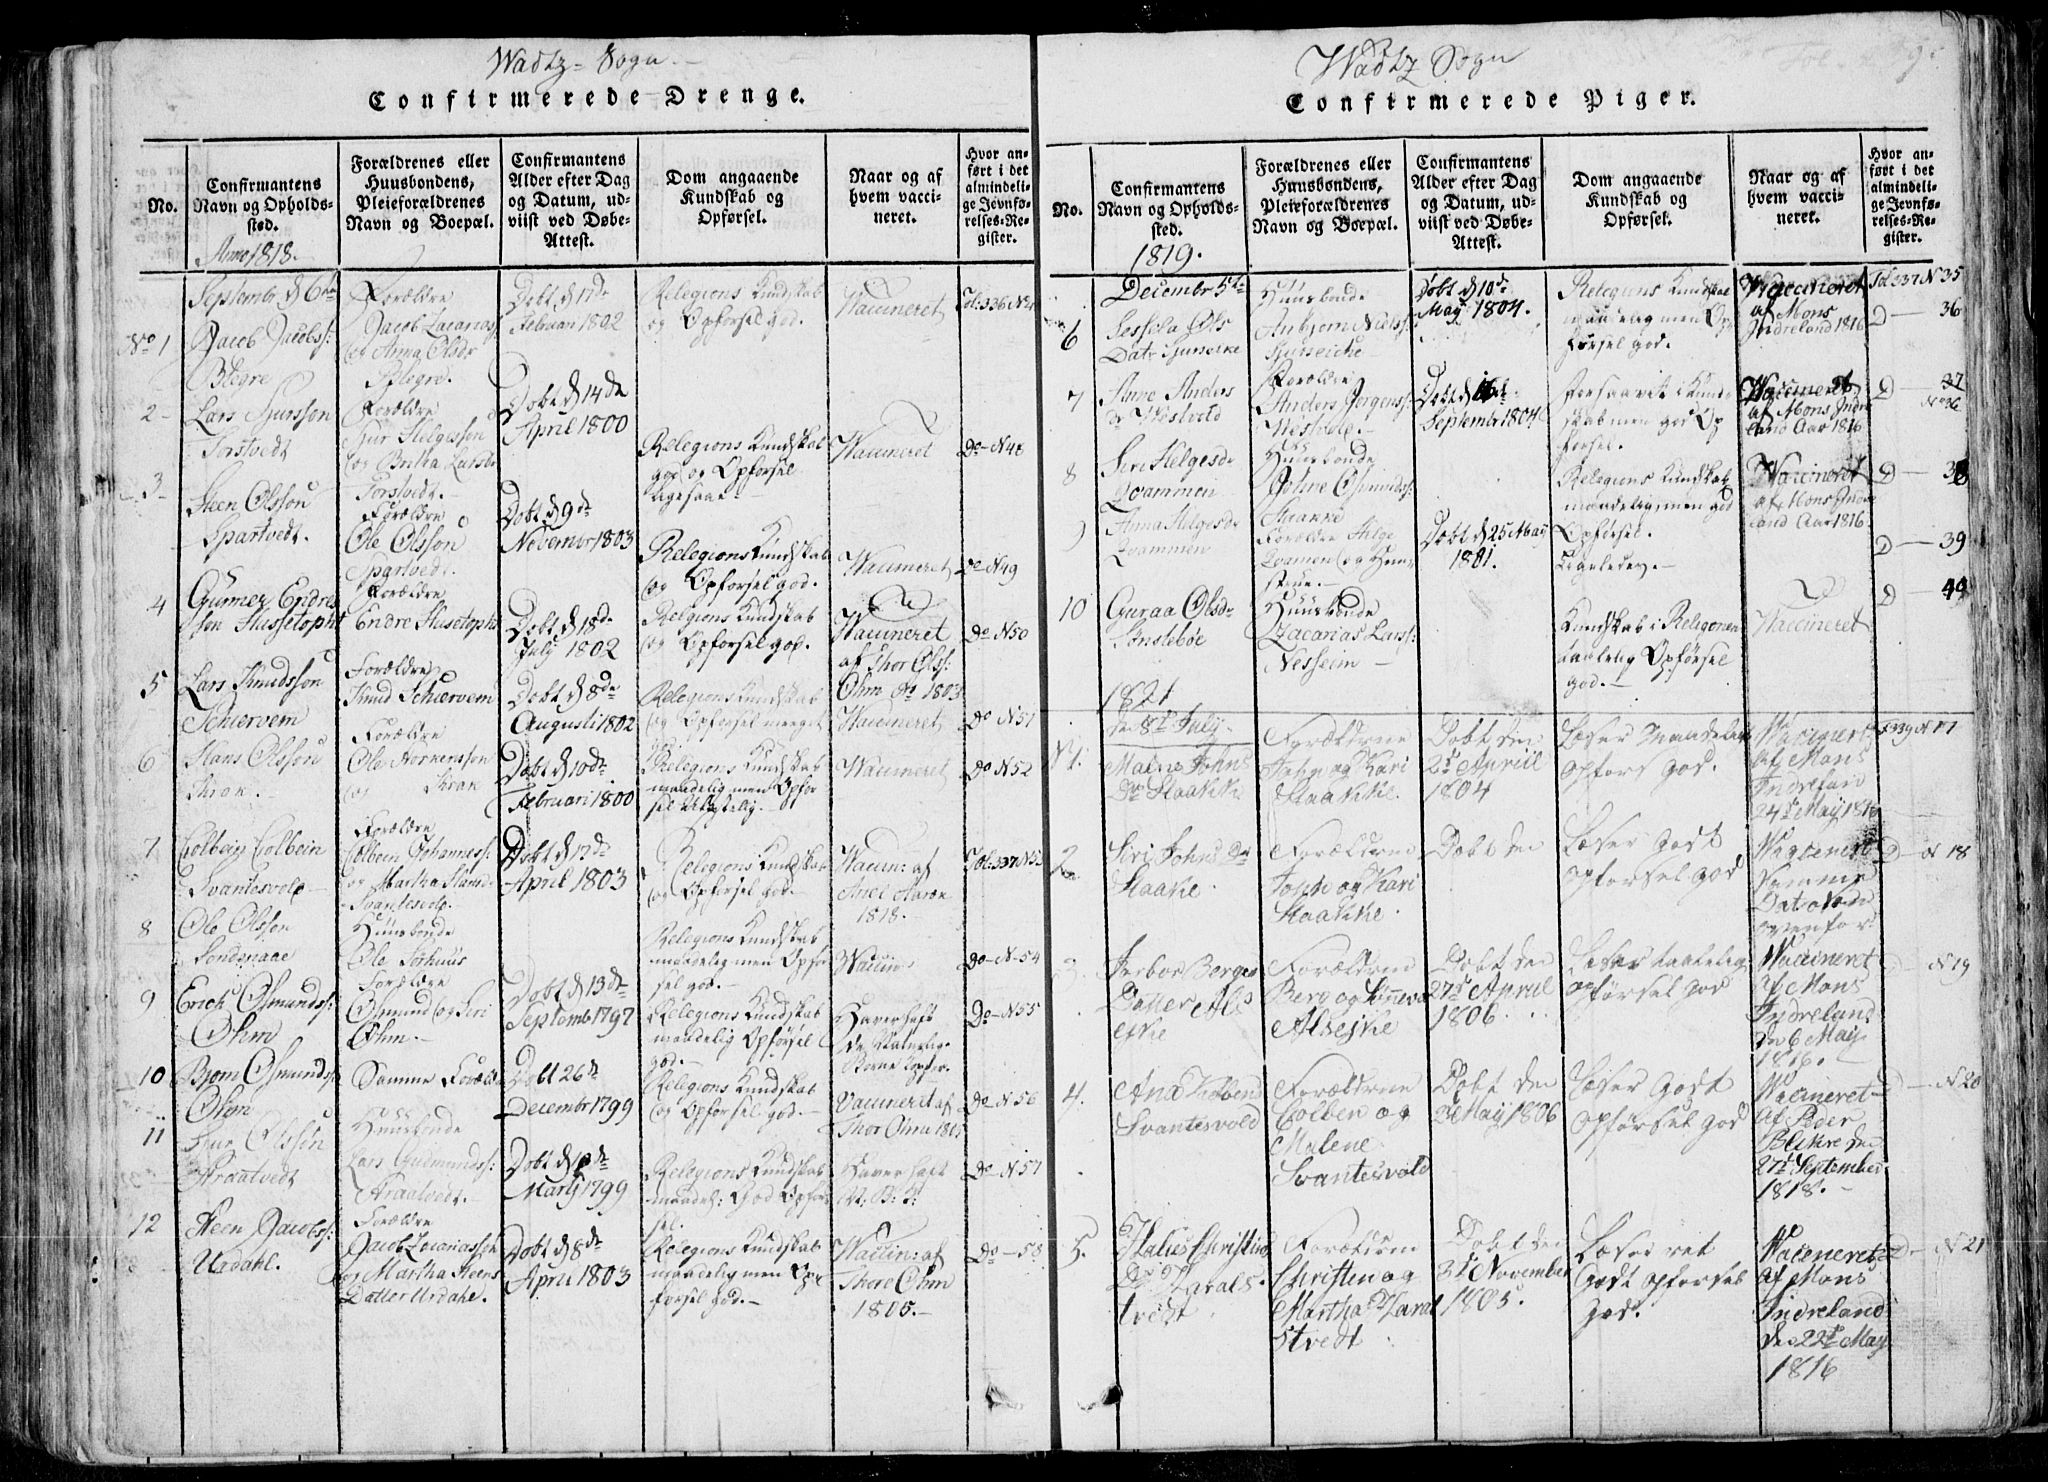 Wadtz Sogn
Confirmerede Drenge.
No.
Confirmantens
Navn og Opholds-
sted.
Anno 1818.
Forældrenes eller
Huusbondens,
Pleieforældrenes
Navn og Boepæl.
Confirmantens
Alder efter Dag
og Datum, ud-
viist ved Døbe-
Attest.
Dom angaaende
Kundskab og
Opførsel.
Naar og af
hvem vacci-
neret.
Hvor an-
ført i det
almindeli-
ge Jevnfø-
relses-Re-
gister.
Septembr d 6te
No 1
Jacob Jacobss:
Blegre
Forældre
Jacob Zacariass
og Anna Olsdr
Blegre.
Dobt d 17de
Februari 1802
Relegions Kundskab
og Opforsel god.
Waccineret
Fol: 336 N 47
2
Lars Sjursson
Torstvedt
Forældre
Sjur Helgesson
og Britha Larsdr
Torstvedt.
Dobt d 14de
April 1800
Relegions Kundskab
god og Opforsel
ligesaa
Waccineret
Do N 48
3
Steen Olsson
Spartvedt.
Forældre
Ole Olsson
Spartvedt.
Dobt d 9de
Novembr 1803
Relegions Kundskab
og Opforsel god.
Waccineret
Do N 49
4
Gunner Endres
son Hussetopht
Forældre
Endre Husetopht
Dobt d 18de
July 1802
Relegions Kundskab
og Opforsel god.
Waccineret
af Thor Olss:
Ohm Ao 1803
Do N 50
5
Lars Knudsson
Schiervem
Forældre
Knud Schiervem
Dobt d 8de
Augusti 1802
Relegions Kundskab
og Opforsel meeget
god
Waccineret
Do N 51
6
Hans Olsson
Forældre
Ole
og
Dobt d 10de
Februari 1800
Relegions Kundskab
maadelig men Opfor
sel
Waccineret
Do N 52
7
Colbein Colbein
Svantesvold
Forældre
Colbeen Johanness:
og Martha
Svantesvold.
Dobt d 17de
April 1803
Relegions Kundskab
og Opforsel god.
Waccin: af
1818.
Fol: 337 N 53
8
Ole Olsson
Sondenaae
Huusbonde
Ole
Relegions Kundskab
maadelig men Opfor
sel god.
Waccin
Do N 54
9
Erick Osmundss:
Ohm
Forældre
Osmund og Siri
Ohm.
Dobt d 13de
Septemb 1797
Relegions Kundskab
maadelig Opførsel
god.
Haver haft
de Naturlig
Børne Kopper.
Do N 55
10
Bjorn Osmundss
Ohm
Samme Foræld
Dobt 26de
Decembr 1799
Relegions Kundskab
og Opforsel god.
Vaccineret af
Thor Ohm
Do N 56
11
Sjur Olsson
Araatvedt
Huusbonde
Lars Gudmundss:
Araatvedt.
Marty 1799
Relegions Kundskab
maadel: God Opfor
sel.
Haver haft
N: B: K:
Do N 57
12
Steen Jacobss:
Urdahl.
Forældre
Jacob Zacariasson
og Martha Steens
Datter Urdahl.
Dobt d 8de
April 1803
Relegions Kundskab
maadelig men Op
forsel god.
Waccin: af
Thore Ohm
1805.
Do 58
Wadtz Sogn
Confirmerede Piger.
No.
Confirmantens
Navn og Opholds-
sted.
1819.
Forældrenes eller
Huusbondens,
Pleieforældrenes
Navn og Boepæl.
Confirmantens
Alder efter Dag
og Datum, ud-
viist ved Døbe-
Attest.
Dom angaaende
Kundskab og
Opførsel.
Naar og af
hvem vacci-
neret.
Hvor an-
ført i det
almindeli-
ge Jevnfø-
relses-Re-
gister.
Decembr 5te
6
Datr
Huusbonde
Dobt d 10de
May 1804.
Relegions Kundskab
maadelig men Op
forsel god.
Waccineret
af Mons
Indreland 1816
Fol 337 N 35
D 36
7
Anne Anders
dr Westvold
Forældre
Anders Jorgenss:
Septembr 1804
skab men god Op
forsel.
Waccineret
af Mons Indre
land Aar 1816
D 37
8
Siri Helgesdr
Qvammen
Huusbonde
Relegions Kundskab
maadelig men god
Opførsel.
Waccineret
af Mons Indre
land Aar 1816
D 38
9
Anna Helgesdr
Qvammen
Forældre Helge
Qvamen og
Dobt d 25 May
1801.
Ligeledes.
D 39
10
Guraa Olsdr
Huusbonde
Zacarias Larss:
Nesseim
Kundskab i Religionen
taalelig Opførsel
god.
Waccineret
D 40
1821
den 8de July.
N 1.
Johns
Dr Haakke
Forældrene
John og Kari
Haakke.
Dobt den
2d Apriil
1804
Læser maadelig
opførs god.
Vacinert
af Mons
Indrelan
24d May 1816
F 339 N 17
2
Siri Johns Dr
Haakke
Forældrene
John og Kari
Haakke.
Dobt den
Læser godt
opførsel god
Vaccenert
samme
Dato som
ovenfor
D N 18
3
Berges
Datter Als
eske
Forældrene
Berge og
Alseske
Dobt den
27d Apriil
1806
Læser taalelig
opførsel god
Waccineret
af Mons
Indreland
den 6 May
1816.
N 19
4.
Ana
Svantesvold
Forældrene
Colben og
Malene
Svantesvold
Dobt den
May 1806
Læser godt
opførsel god
Waccineret
af Peder
den
27d September
1818.
D N 20
5.
Christens
Dr Haralds
tvedt
Forældrene
Christen og
Martha Haral
stvedt
Dobt den
3d November
1805.
Læser ret
godt opførsel
god.
Vacceneret
af Mons
Indreland
den 22d May
1816
D N 21